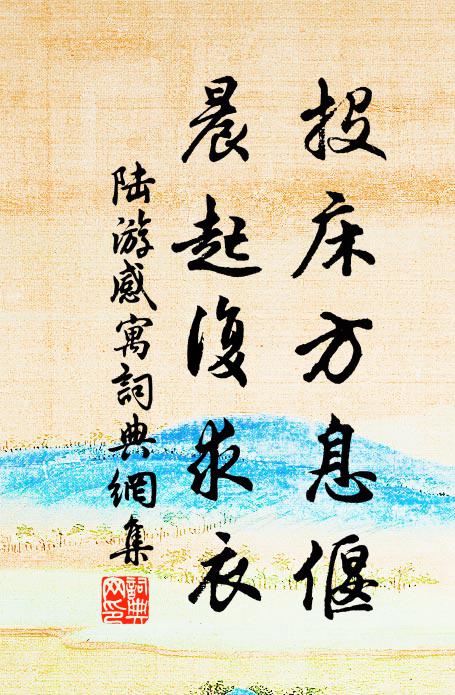 投床方息偃
晨起復求衣
陸游感寓詞典網集